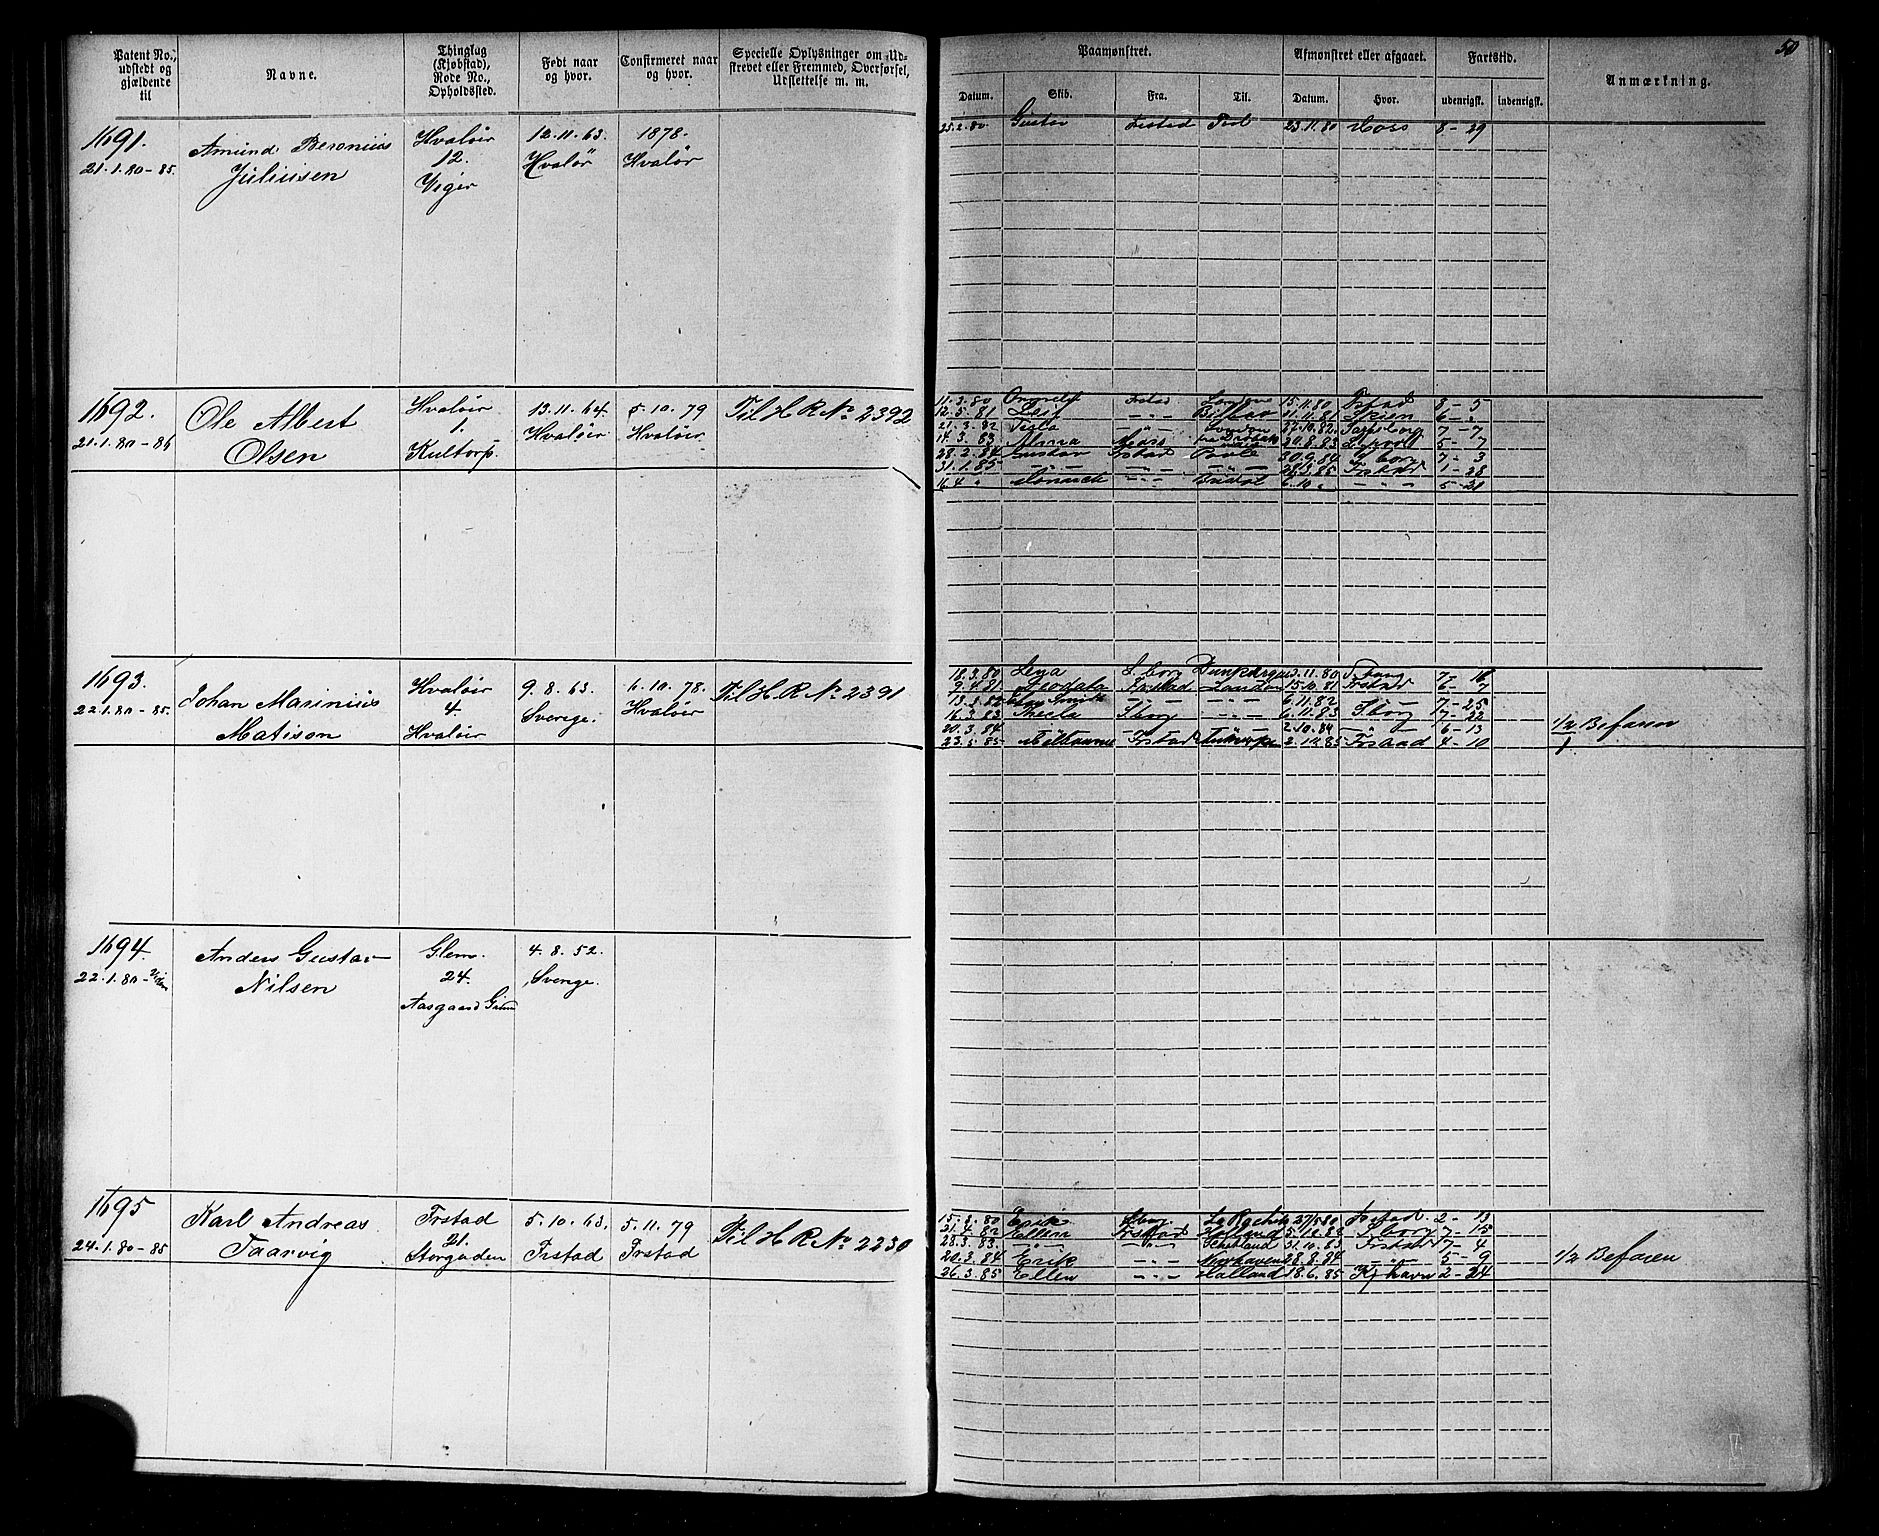 Patent No., udstedt og gjældende til
Navne.
Thinglag (Kjøbstad), Rode No., Opholdssted.
Født naar og hvor.
Confirmeret naar og hvor.
Specielle Oplysninger om Udskrevet eller Fremmed, Overførsel, Udslettelse m. m.
Paamønstret.
Datum.
Skib.
Fra.
Til.
Afmønstret eller afgaaet.
Datum.
Hvor.
Fartstid.
udenrigsk.
indenrigsk.
Anmærkning.
50
1691.
21.1.80-85.
Amund Beronius
Juliusen
Hvaløer
12.
Viger
12.11.63.
Hvalör
1878.
Hvalör
25.2.80 Gustav 23.11.80 Moss 8-29
1692.
21.1.80-86
Ole Albert
Olsen
Hvaløer
1.
Kultorp.
13.11.64.
Hvaløer
5.10.79
Hvaløer
Til H R No 2392
11.3.80 15.11.80 Frstad 8-5
12.5.81 Leif -"- Bilbao 11.11.81 Skien
21.3.82 -"- 27.10.82 Sarpsborg 7-7
14.3.83 Alma 20.8.83 5-7
28.2.84 Gustav Frstad 30.9.84 7-3
31.1.85 -"- -"- -"- 28.3.85 Frstad 1-28
16.4 " Monarch -"- 6.10 " -"- 5-21
1693.
22.1.80-85.
Johan Marinius
Matison
Hvaløer
4.
Hvaløer
9.8.63.
Sverige.
6.10.78.
Hvaløer
Til H R No 2391
18.3.80 3.11.80 7-16
9.4.81 Frstad London 15.10.81 Frstad 6-7
-"- -"- 6.11.82 -"- 7-25
16.3.83 Thecla Sborg -"- 6.11.83 Sborg 7-22
20.3.84 -"- 2.10.84 -"- 6-13
23.5.85 Frstad 2.10.85 Frstad 4-10
1/2 Befaren
1694.
22.1.80-
Anders Gustav
Nilsen
Glem.
24.
Aasgaard
4.8.52.
Sverige.
1695
24.1.80-85
Karl Andreas
Taarvig
Frstad
21.
Storgaden
5.10.63.
Frstad
5.11.79
Frstad
Til H R No 2230
15.3.80 Erik Sborg 27/5 80 Frstad 2-
21.4.82 Ellen Frstad Sborg 7-15
28.3.83 -"- -"- 31.10.83 Frstad 7-4
20.3.84 Erik -"- 28.8.84 -"- 5-9
26.3.85 Ellen -"- Holland 18.6.85 Kjhavn 2-24
1/2 Befaren